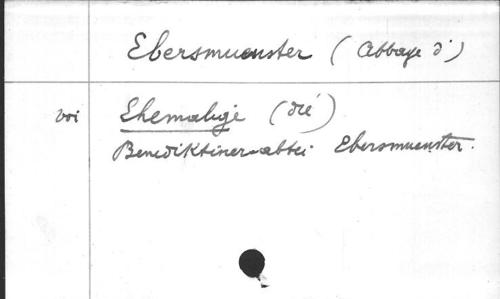 Ebersmuenster (Abbaye d')
voi Ehemalige (die)
Benediktiner-abtei Ebersmuenster.